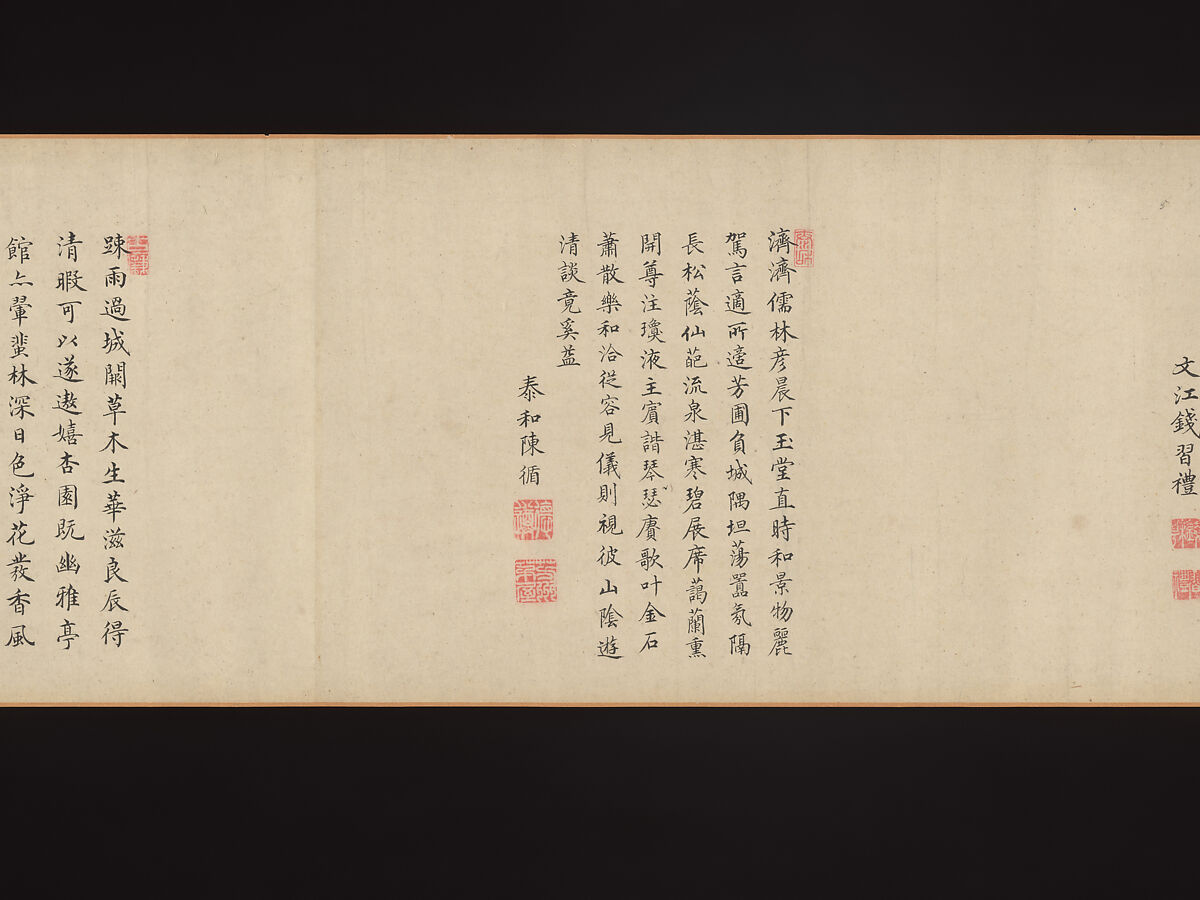 文江錢習禮
濟濟儒林彦晨下玉堂直時和景物麗
駕言適所適芳圃負城隅坦蕩囂氛隔
長松蔭仙葩流泉湛寒碧展席藹蘭熏
開尊注瓊液主賓諧琴瑟賡歌叶金石
蕭散樂和洽從容見儀則視彼山陰遊
清談竟奚益
泰和陳循
踈雨過城闕草木生華滋良辰得
清暇可以遂遨嬉杏園既幽雅亭
館亦翬蜚林深日色淨花發香風